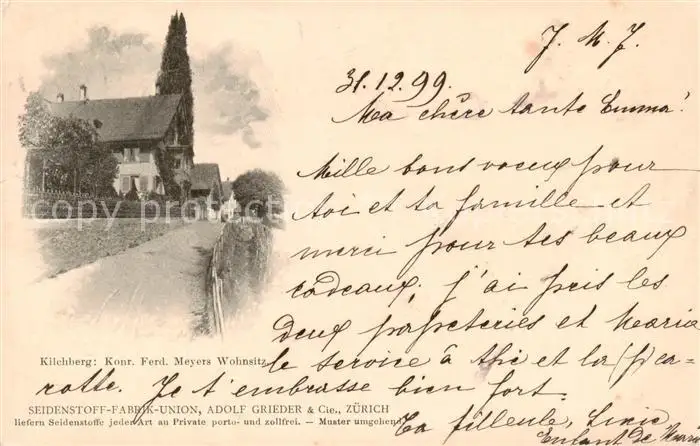 J. M. J.
31.12.99.
Ma chère tante Emma!
Mille bons voeux pour
toi et ta famille et
merci pour tes beaux
cadeaux; j'ai pris les
deux papeteries et Marie
le service à thé et la (pi) ca-
rotte. Je t'embrasse bien fort.
Ta filleule,
Enfant de Marie
Kilchberg: Konr. Ferd. Meyers Wohnsitz
SEIDENSTOFF-FABRIK-UNION, ADOLF GRIEDER & Cie., ZÜRICH
liefern Seidenstoffe jeder Art au Private porto- und zollfrei. — Muster umgehend.